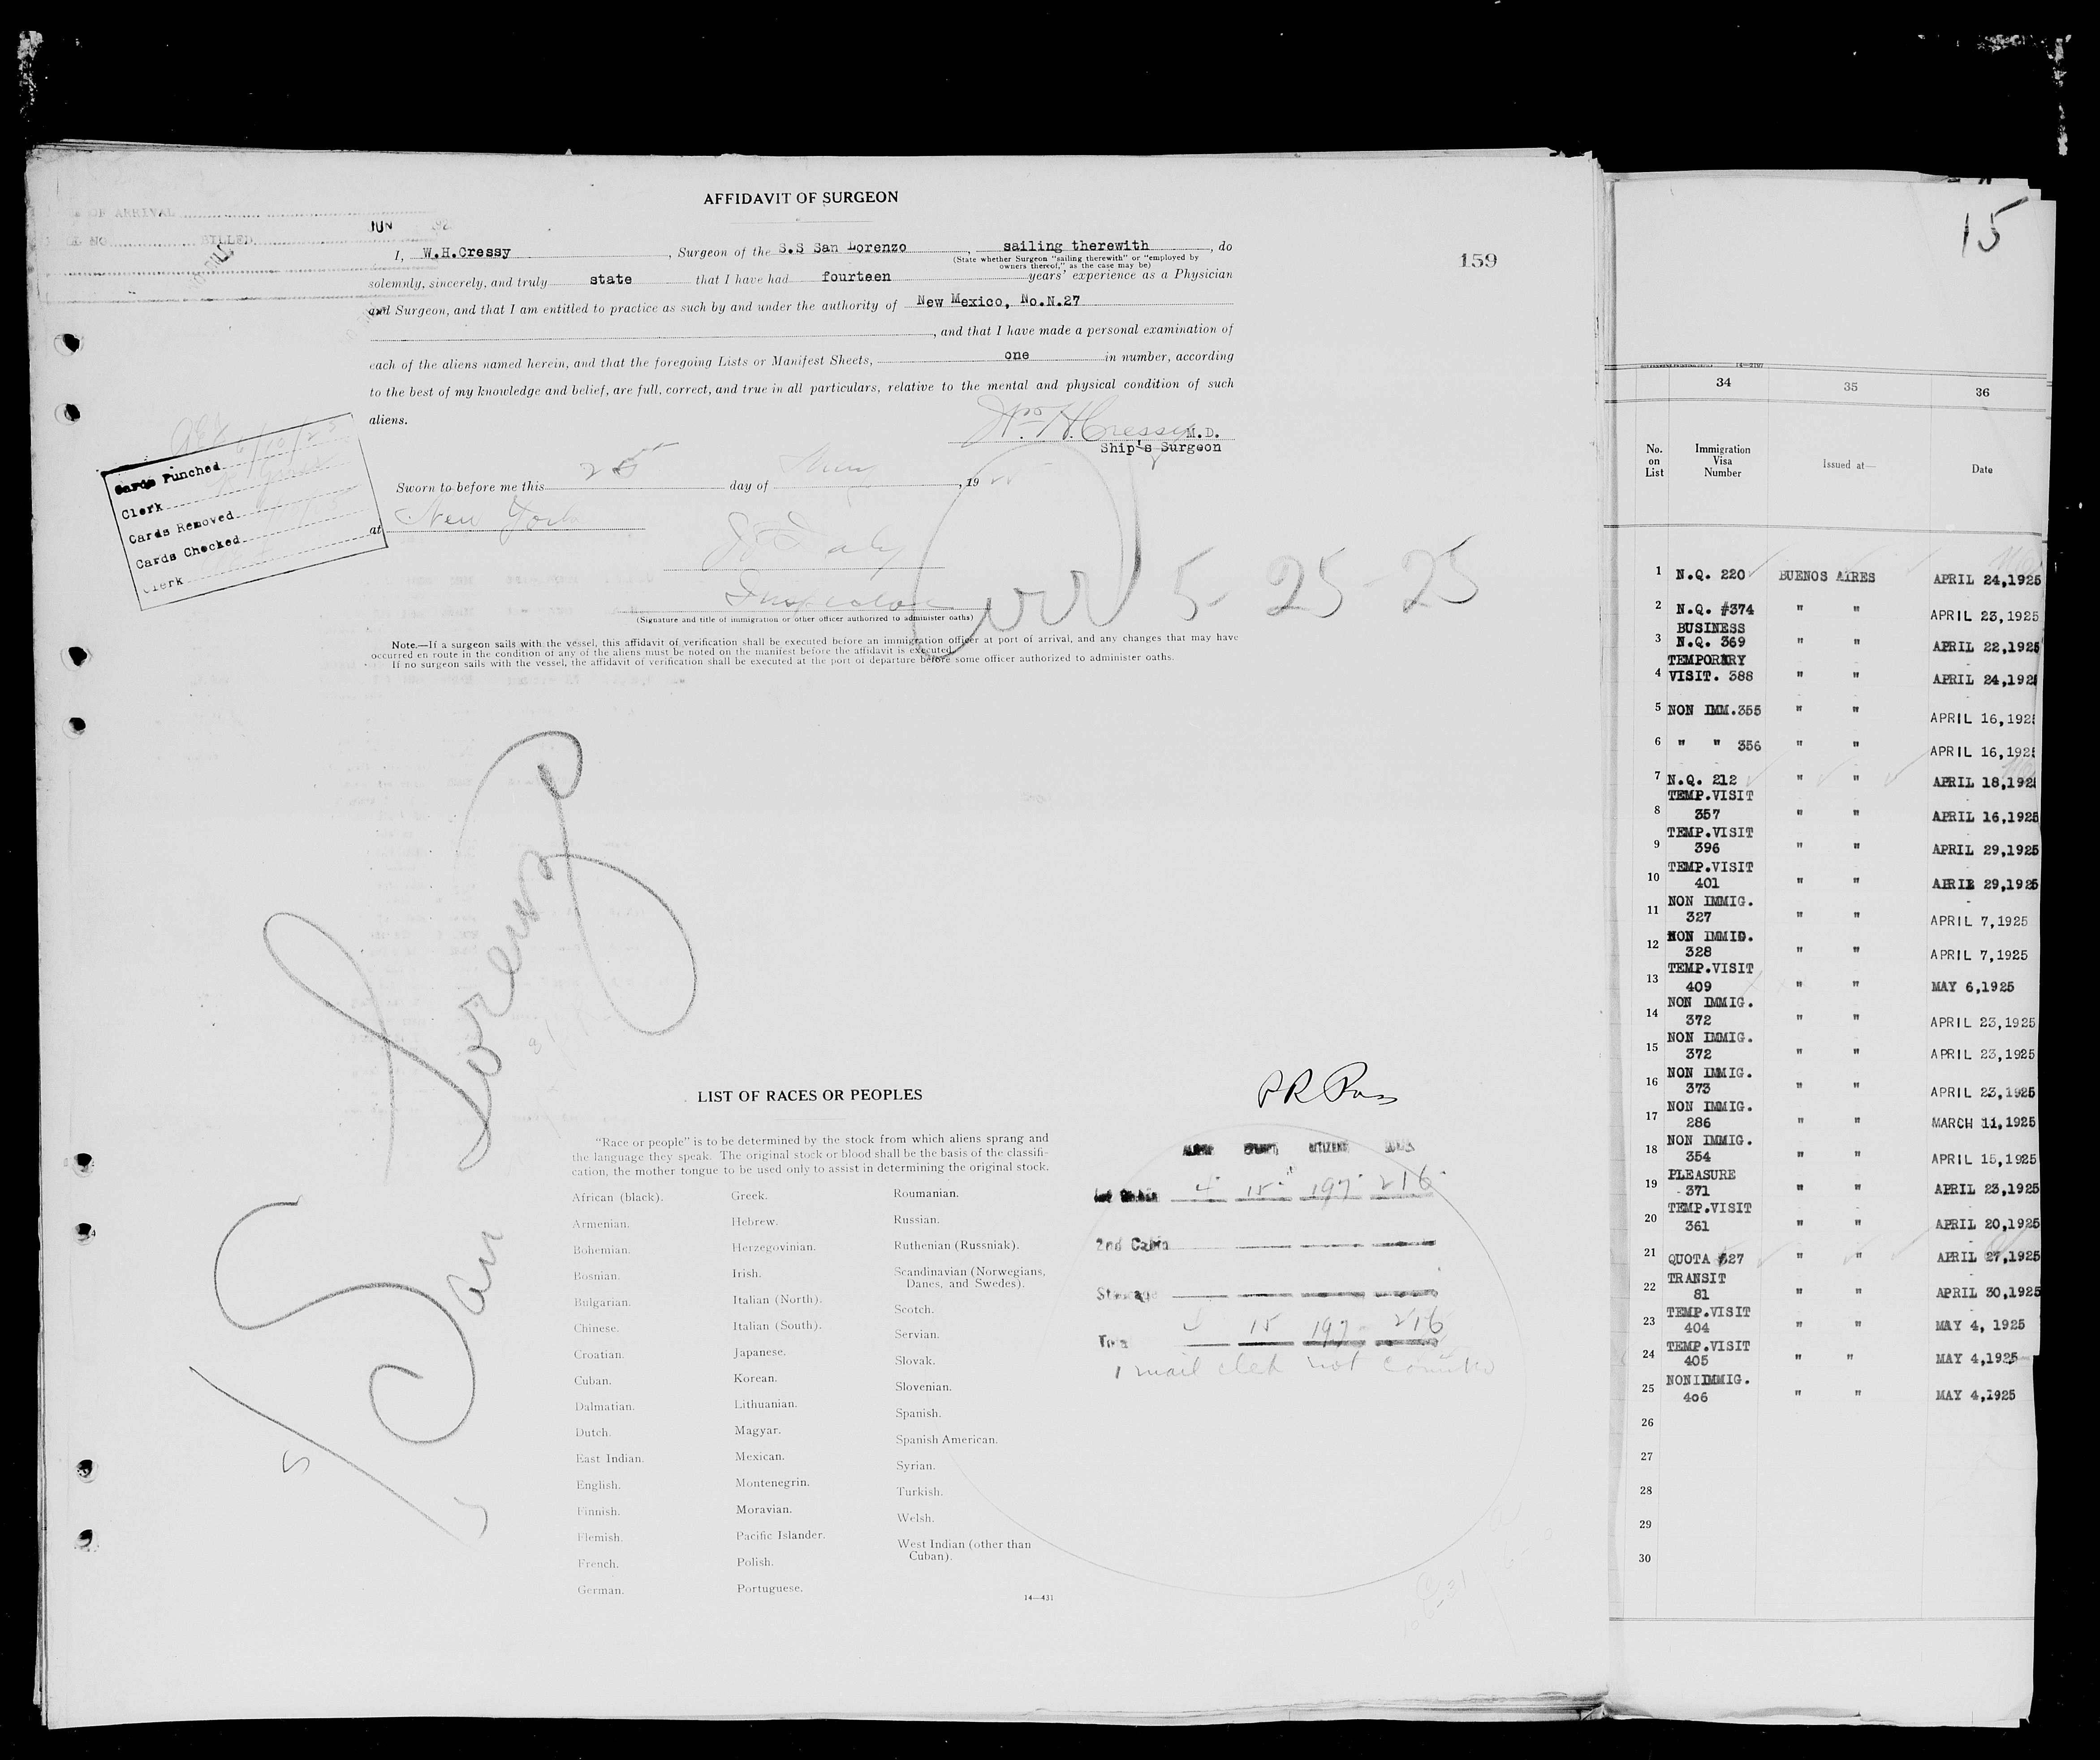 AFFIDAVIT OF SURGEON
OF ARRIVAL
NO. BILLED
JUN
I, W.H.Cressy, Surgeon of the S.S San Lorenzo, sailing therewith, do
(State whether Surgeon "sailing therewith" or "employed by
owners thereof," as the case may be)
159
solemnly, sincerely, and truly state that I have had fourteen years' experience as a Physician
and Surgeon, and that I am entitled to practice as such by and under the authority of New Mexico, No.N.27
, and that I have made a personal examination of
each of the aliens named herein, and that the foregoing Lists or Manifest Sheets, one in number, according
to the best of my knowledge and belief, are full, correct, and true in all particulars, relative to the mental and physical condition of such
aliens.
Wm H. Cressy M.D.
Ship's Surgeon
Cards Punched
Clerk
Cards Removed
Cards Checked
Clerk
Sworn to before me this 25 day of , 19
at New York
Inspector
5-25-25
(Signature and title of immigration or other officer authorized to administer oaths)
Note.—If a surgeon sails with the vessel, this affidavit of verification shall be executed before an immigration officer at port of arrival, and any changes that may have
occurred en route in the condition of any of the aliens must be noted on the manifest before the affidavit is executed.
If no surgeon sails with the vessel, the affidavit of verification shall be executed at the port of departure before some officer authorized to administer oaths.
San Lorenzo
LIST OF RACES OR PEOPLES
"Race or people" is to be determined by the stock from which aliens sprang and
the language they speak. The original stock or blood shall be the basis of the classifi-
cation, the mother tongue to be used only to assist in determining the original stock.
African (black).
Armenian.
Bohemian.
Bosnian.
Bulgarian.
Chinese.
Croatian.
Cuban.
Dalmatian.
Dutch.
East Indian.
English.
Finnish.
Flemish.
French.
German.
Greek.
Hebrew.
Herzegovinian.
Irish.
Italian (North).
Italian (South).
Japanese.
Korean.
Lithuanian.
Magyar.
Mexican.
Montenegrin.
Moravian.
Pacific Islander.
Polish.
Portuguese.
Roumanian.
Russian.
Ruthenian (Russniak).
Scandinavian (Norwegians,
Danes, and Swedes).
Scotch.
Servian.
Slovak.
Slovenian.
Spanish.
Spanish American.
Syrian.
Turkish.
Welsh.
West Indian (other than
Cuban).
14—431
4 15 197 216
2nd Cabin
Steerage
4 15 197 216
1 mail clerk not
15
34 35 36
No. on List
Immigration Visa Number
Issued at—
Date
1 N.Q. 220 BUENOS AIRES APRIL 24,1925
2 N.Q. #374 " " APRIL 23,1925
3 BUSINESS N.Q. 369 " " APRIL 22,1925
4 TEMPORARY VISIT. 388 " " APRIL 24,192
5 NON IMM.355 " " APRIL 16,192
6 " " 356 " " APRIL 16,192
7 N.Q. 212 " " APRIL 18,192
8 TEMP.VISIT 357 " " APRIL 16,1925
9 TEMP.VISIT 396 " " APRIL 29,1925
10 TEMP.VISIT 401 " " APRIL 29,1925
11 NON IMMIG. 327 " " APRIL 7,1925
12 NON IMMID. 328 " " APRIL 7,1925
13 TEMP.VISIT 409 " " MAY 6,1925
14 NON IMMIG. 372 " " APRIL 23,1925
15 NON IMMIG. 372 " " APRIL 23,1925
16 NON IMMIG. 373 " " APRIL 23,1925
17 NON IMMIG. 286 " " MARCH 11,1925
18 NON IMMIG. 354 " " APRIL 15,1925
19 PLEASURE 371 " " APRIL 23,1925
20 TEMP.VISIT 361 " " APRIL 20,1925
21 QUOTA #27 " " APRIL 27,1925
22 TRANSIT 81 " " APRIL 30,1925
23 TEMP.VISIT 404 " " MAY 4, 1925
24 TEMP.VISIT 405 " " MAY 4,1925
25 NONIIMMIG. 406 " " MAY 4,1925
26
27
28
29
30